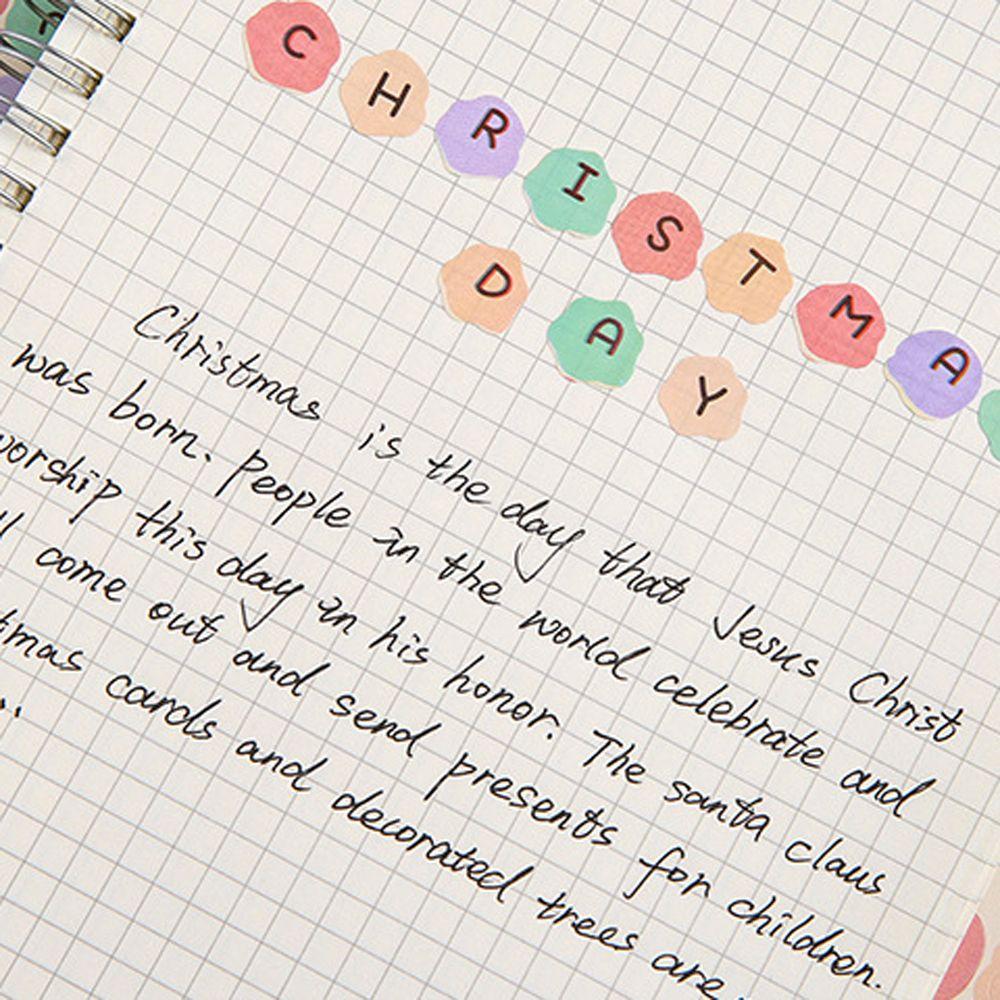 CHRISTMA
DAY
Christmas is the day that Jesus Christ
was born. People in the world celebrate and
worship this day in his honor. The santa claus
come out and send presents for children.
cards and decorated trees are